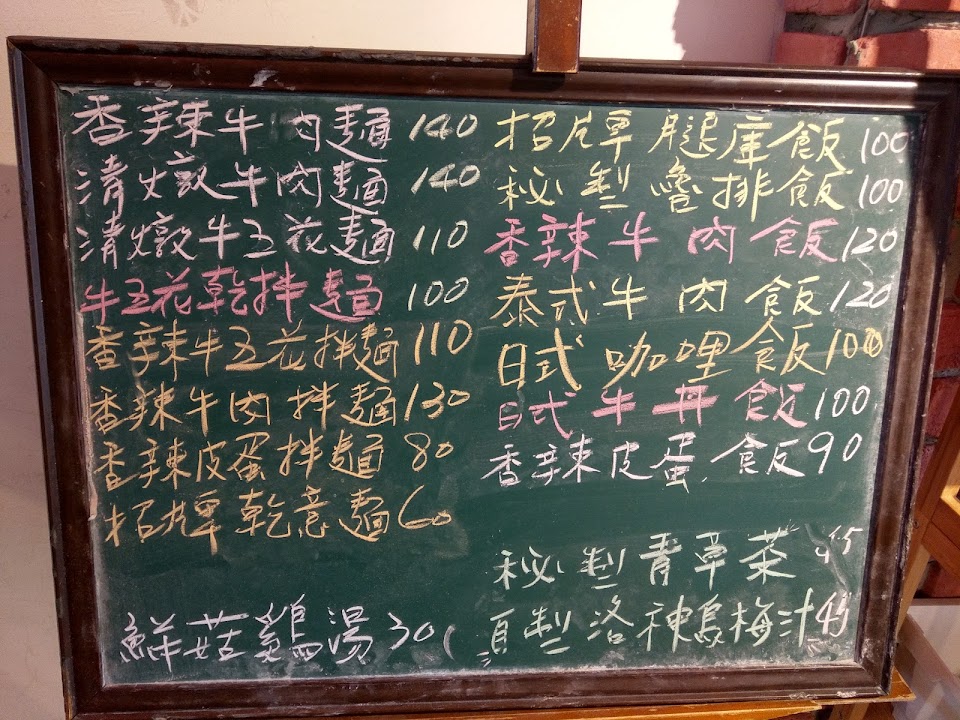 香辣牛肉麵 140
清燉牛肉麵 140
清燉牛五花麵 110
牛五花乾拌麵 100
香辣牛五花拌麵 110
香辣牛肉拌麵 130
香辣皮蛋拌麵 80
招牌乾意麵 60
鮮菇雞湯 30
招牌腿庫飯 100
秘製魯排飯 100
香辣牛肉飯 120
泰式牛肉飯 120
日式咖哩飯 100
日式牛丼飯 100
香辣皮蛋飯 90
秘製青草茶 45
洛神烏梅汁 45